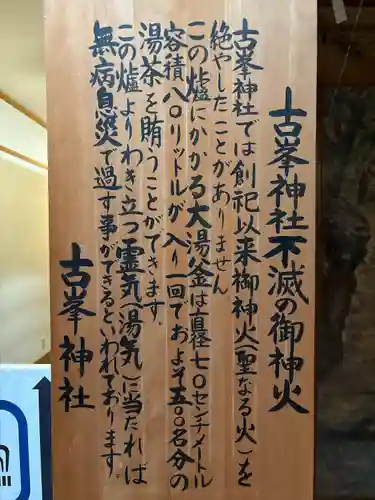 古峯神社不滅の御神火
古峯神社では創祀以来御神火(聖なる火)を
絶やしたことがありません
この爐にかかる大湯釜は直径七〇センチメートル
容積八〇リットルが入り一回でおよそ五〇〇名分の
湯茶を賄うことができます.
この爐よりわき立つ霊気(湯気)に当たれば
無病息災で過す事ができるといわれております.
古峯神社